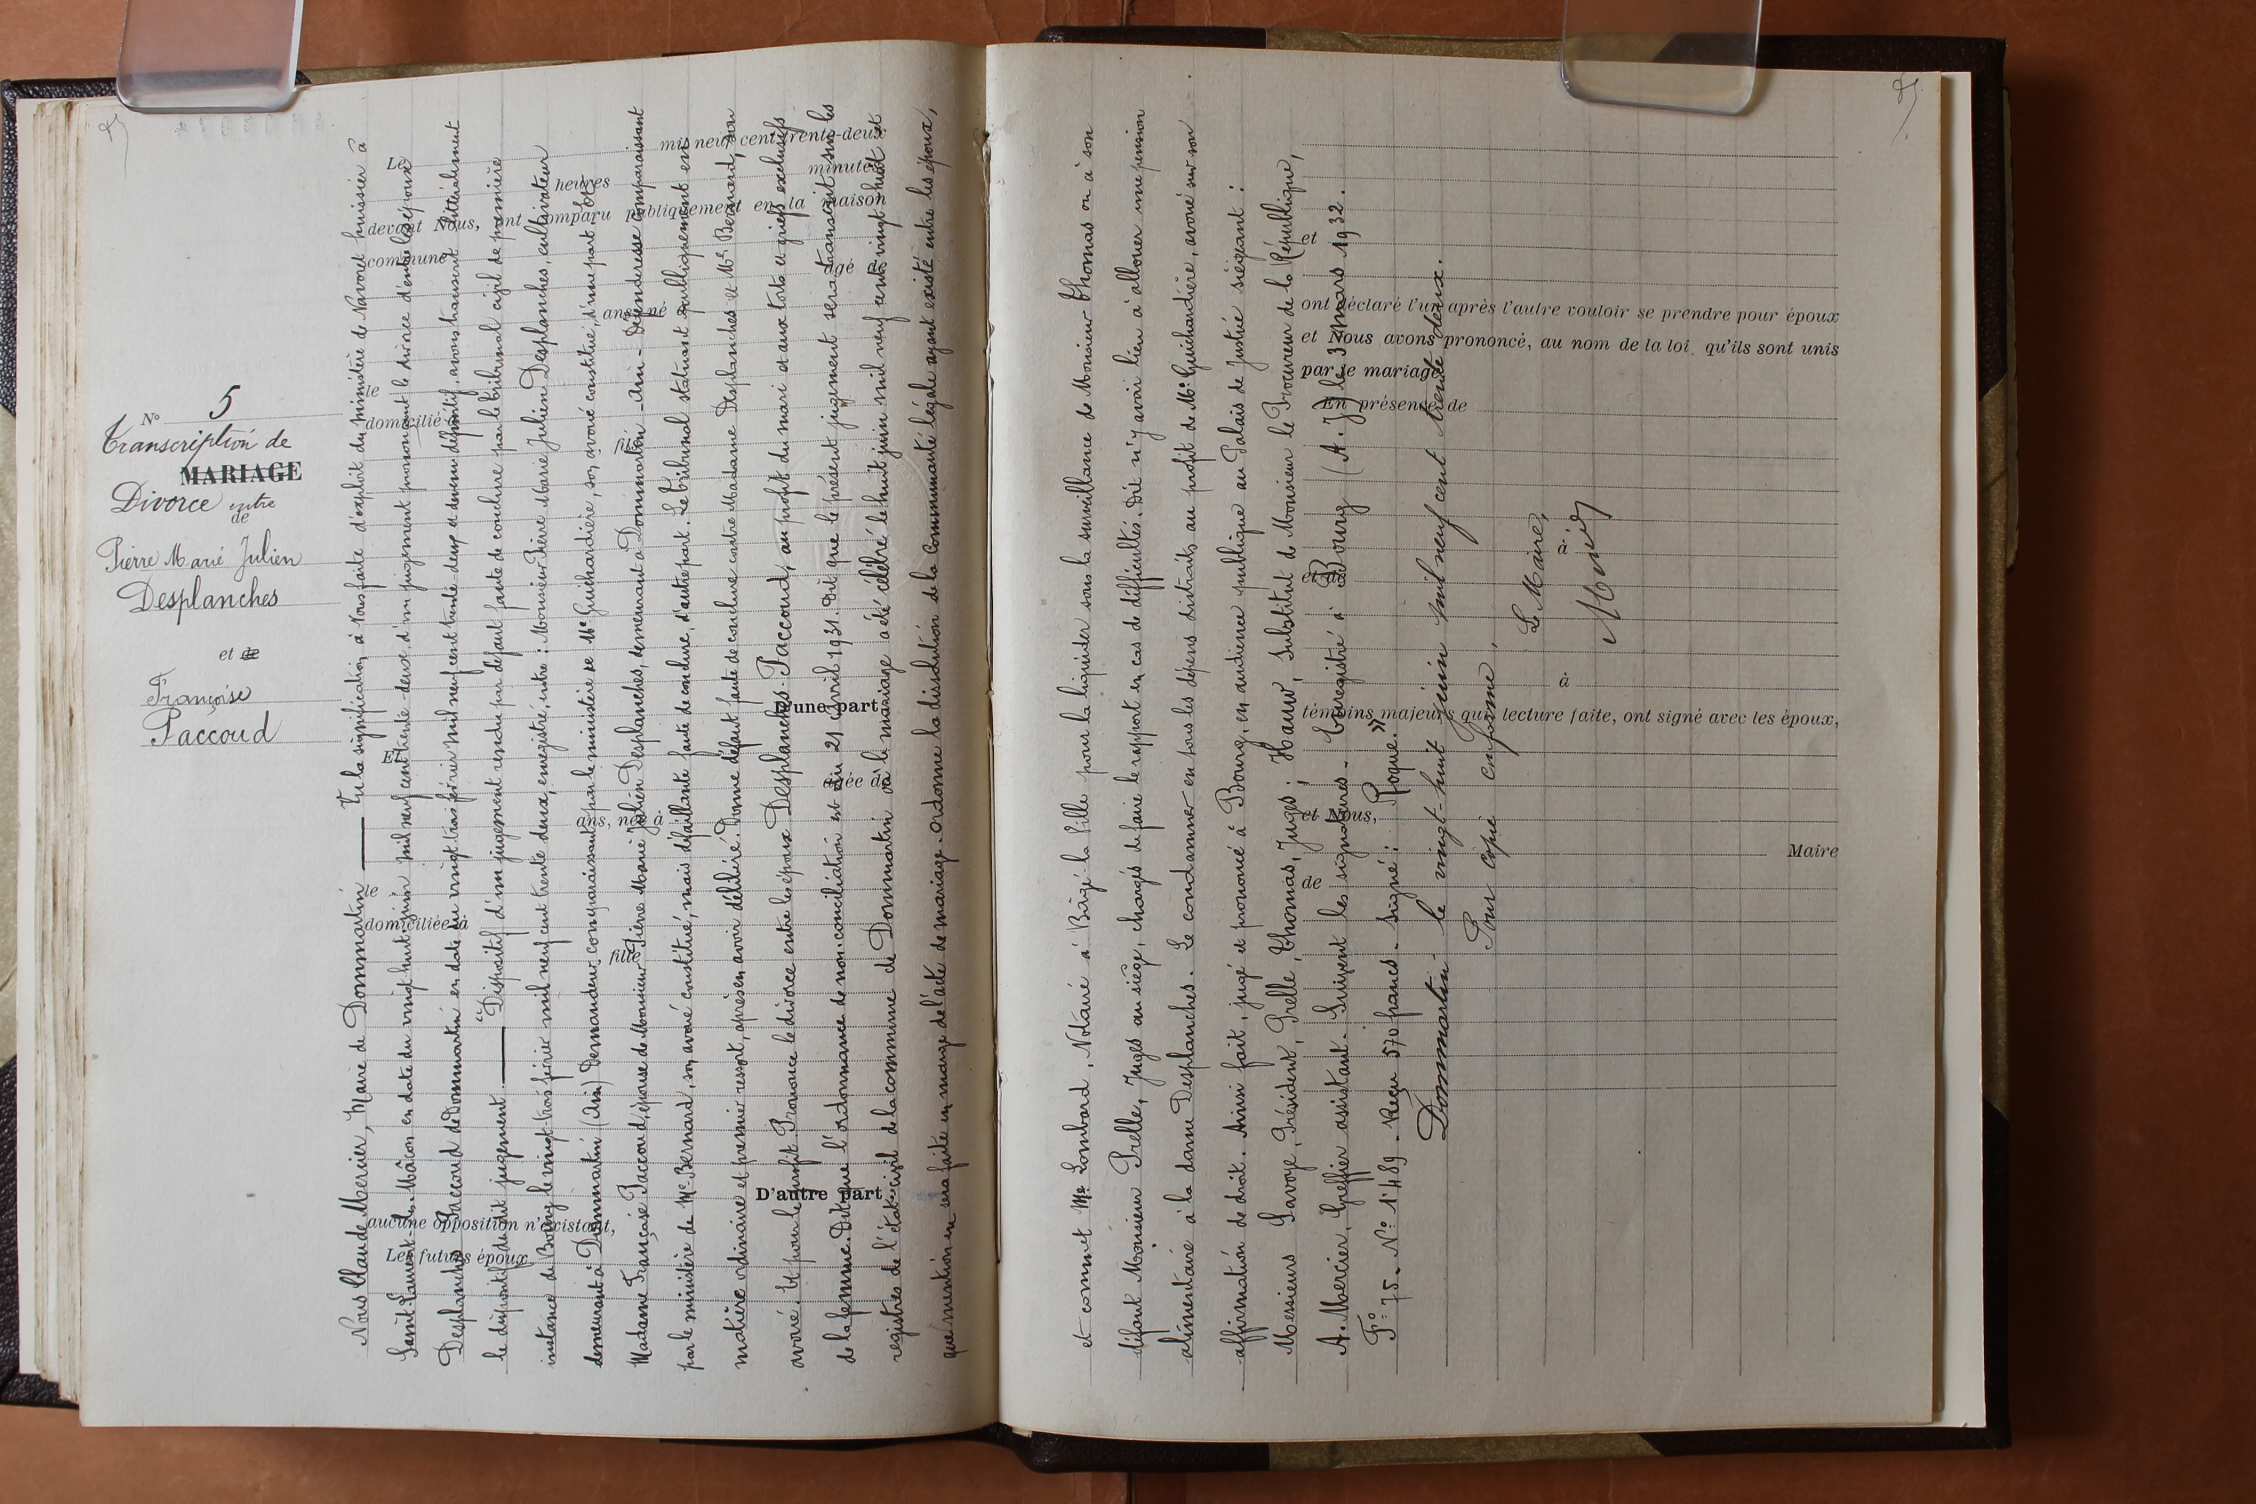 N° 5
Transcription de
MARIAGE
Divorce entre
de
Pierre Marie Julien
Desplanches
et de
Françoise
Paccoud
Nous Claude Mercier, Maire de Dommartin — Vu la signification à Nous faite d'exploit du ministère de Navoret huissier à
Saint-Laurent-lès-Mâcon en date du vingt huit juin mil neuf cent trente-deux, d'un jugement prononçant le divorce d'entre les époux
Desplanches Paccoud de Dommartin en date du vingt trois février mil neuf cent trente-deux et devenu définitif, avons transcrit littéralement
le dispositif dudit jugement. — "Dispositif d'un jugement rendu par défaut faute de conclure par le tribunal civil de première
instance de Bourg le vingt-trois février mil neuf cent trente deux, enregistré, entre : Monsieur Pierre Marie Julien Desplanches, cultivateur
demeurant à Dommartin (Ain) Demandeur comparaissant par le ministère de Me Guichardière, son avoué constitué, d'une part Et
Madame Françoise Paccoud, épouse de Monsieur Pierre Marie Julien Desplanches, demeurant à Dommartin - Ain - Défenderesse comparaissant
par le ministère de Me Bernard, son avoué constitué, mais défaillante faute de conclure, d'autre part. Le tribunal statuant publiquement en
matière ordinaire et premier ressort, après en avoir délibéré. Donne défaut faute de conclure contre Madame Desplanches et Me Bernard, son
avoué. Et pour le profit Prononce le divorce entre les époux Desplanches-Paccoud, au profit du mari et aux torts et griefs exclusifs
de la femme. Dit que l'ordonnance de non-conciliation est du 21 avril 1931. Dit que le présent jugement sera transcrit sur les
registres de l'état-civil de la commune de Dommartin où le mariage a été célébré le huit juin mil neuf cent vingt huit et
que mention en sera faite en marge de l'acte de mariage. Ordonne la dissolution de la communauté légale ayant existé entre les époux,
Le mil neuf cent trente-deux
heures minutes
devant Nous, ont comparu publiquement en la maison
commune
âgé de
ans, né
le
domicilié à
fils
D'une part
Et
âgée de
ans, née à
le
domiciliée à
fille
D'autre part
aucune opposition n'existant,
Les futurs époux
et commet Me Lombard, Notaire à Bâgé-la-Ville pour la liquider sous la surveillance de Monsieur Thomas ou à son
défaut Monsieur Prelle, Juges au siège, chargés de faire le rapport en cas de difficultés. Dit n'y avoir lieu à allouer une pension
alimentaire à la dame Desplanches. Le condamner en tous les dépens distraits au profit de Me Guichardière, avoué sur son
affirmation de droit. Ainsi fait, jugé et prononcé à Bourg, en audience publique au Palais de Justice siégeant :
Messieurs Savoye, Président, Prelle, Thomas, Juges ; Hauw, Substitut de Monsieur le Procureur de la République,
A. Mercier, Greffier assistant. Suivent les signatures - Enregistré à Bourg (A. J) le 3 mars 1932.
F° 75. N° 1489. Reçu 570 francs. Signé : Roque."
Dommartin le vingt-huit juin mil neuf cent trente deux.
Pour copie conforme,
Le Maire,
et
ont déclaré l'un après l'autre vouloir se prendre pour époux
et Nous avons prononcé, au nom de la loi, qu'ils sont unis
par le mariage
En présence de
à
et de
à
témoins majeurs qui, lecture faite, ont signé avec les époux,
et Nous,
Maire
de